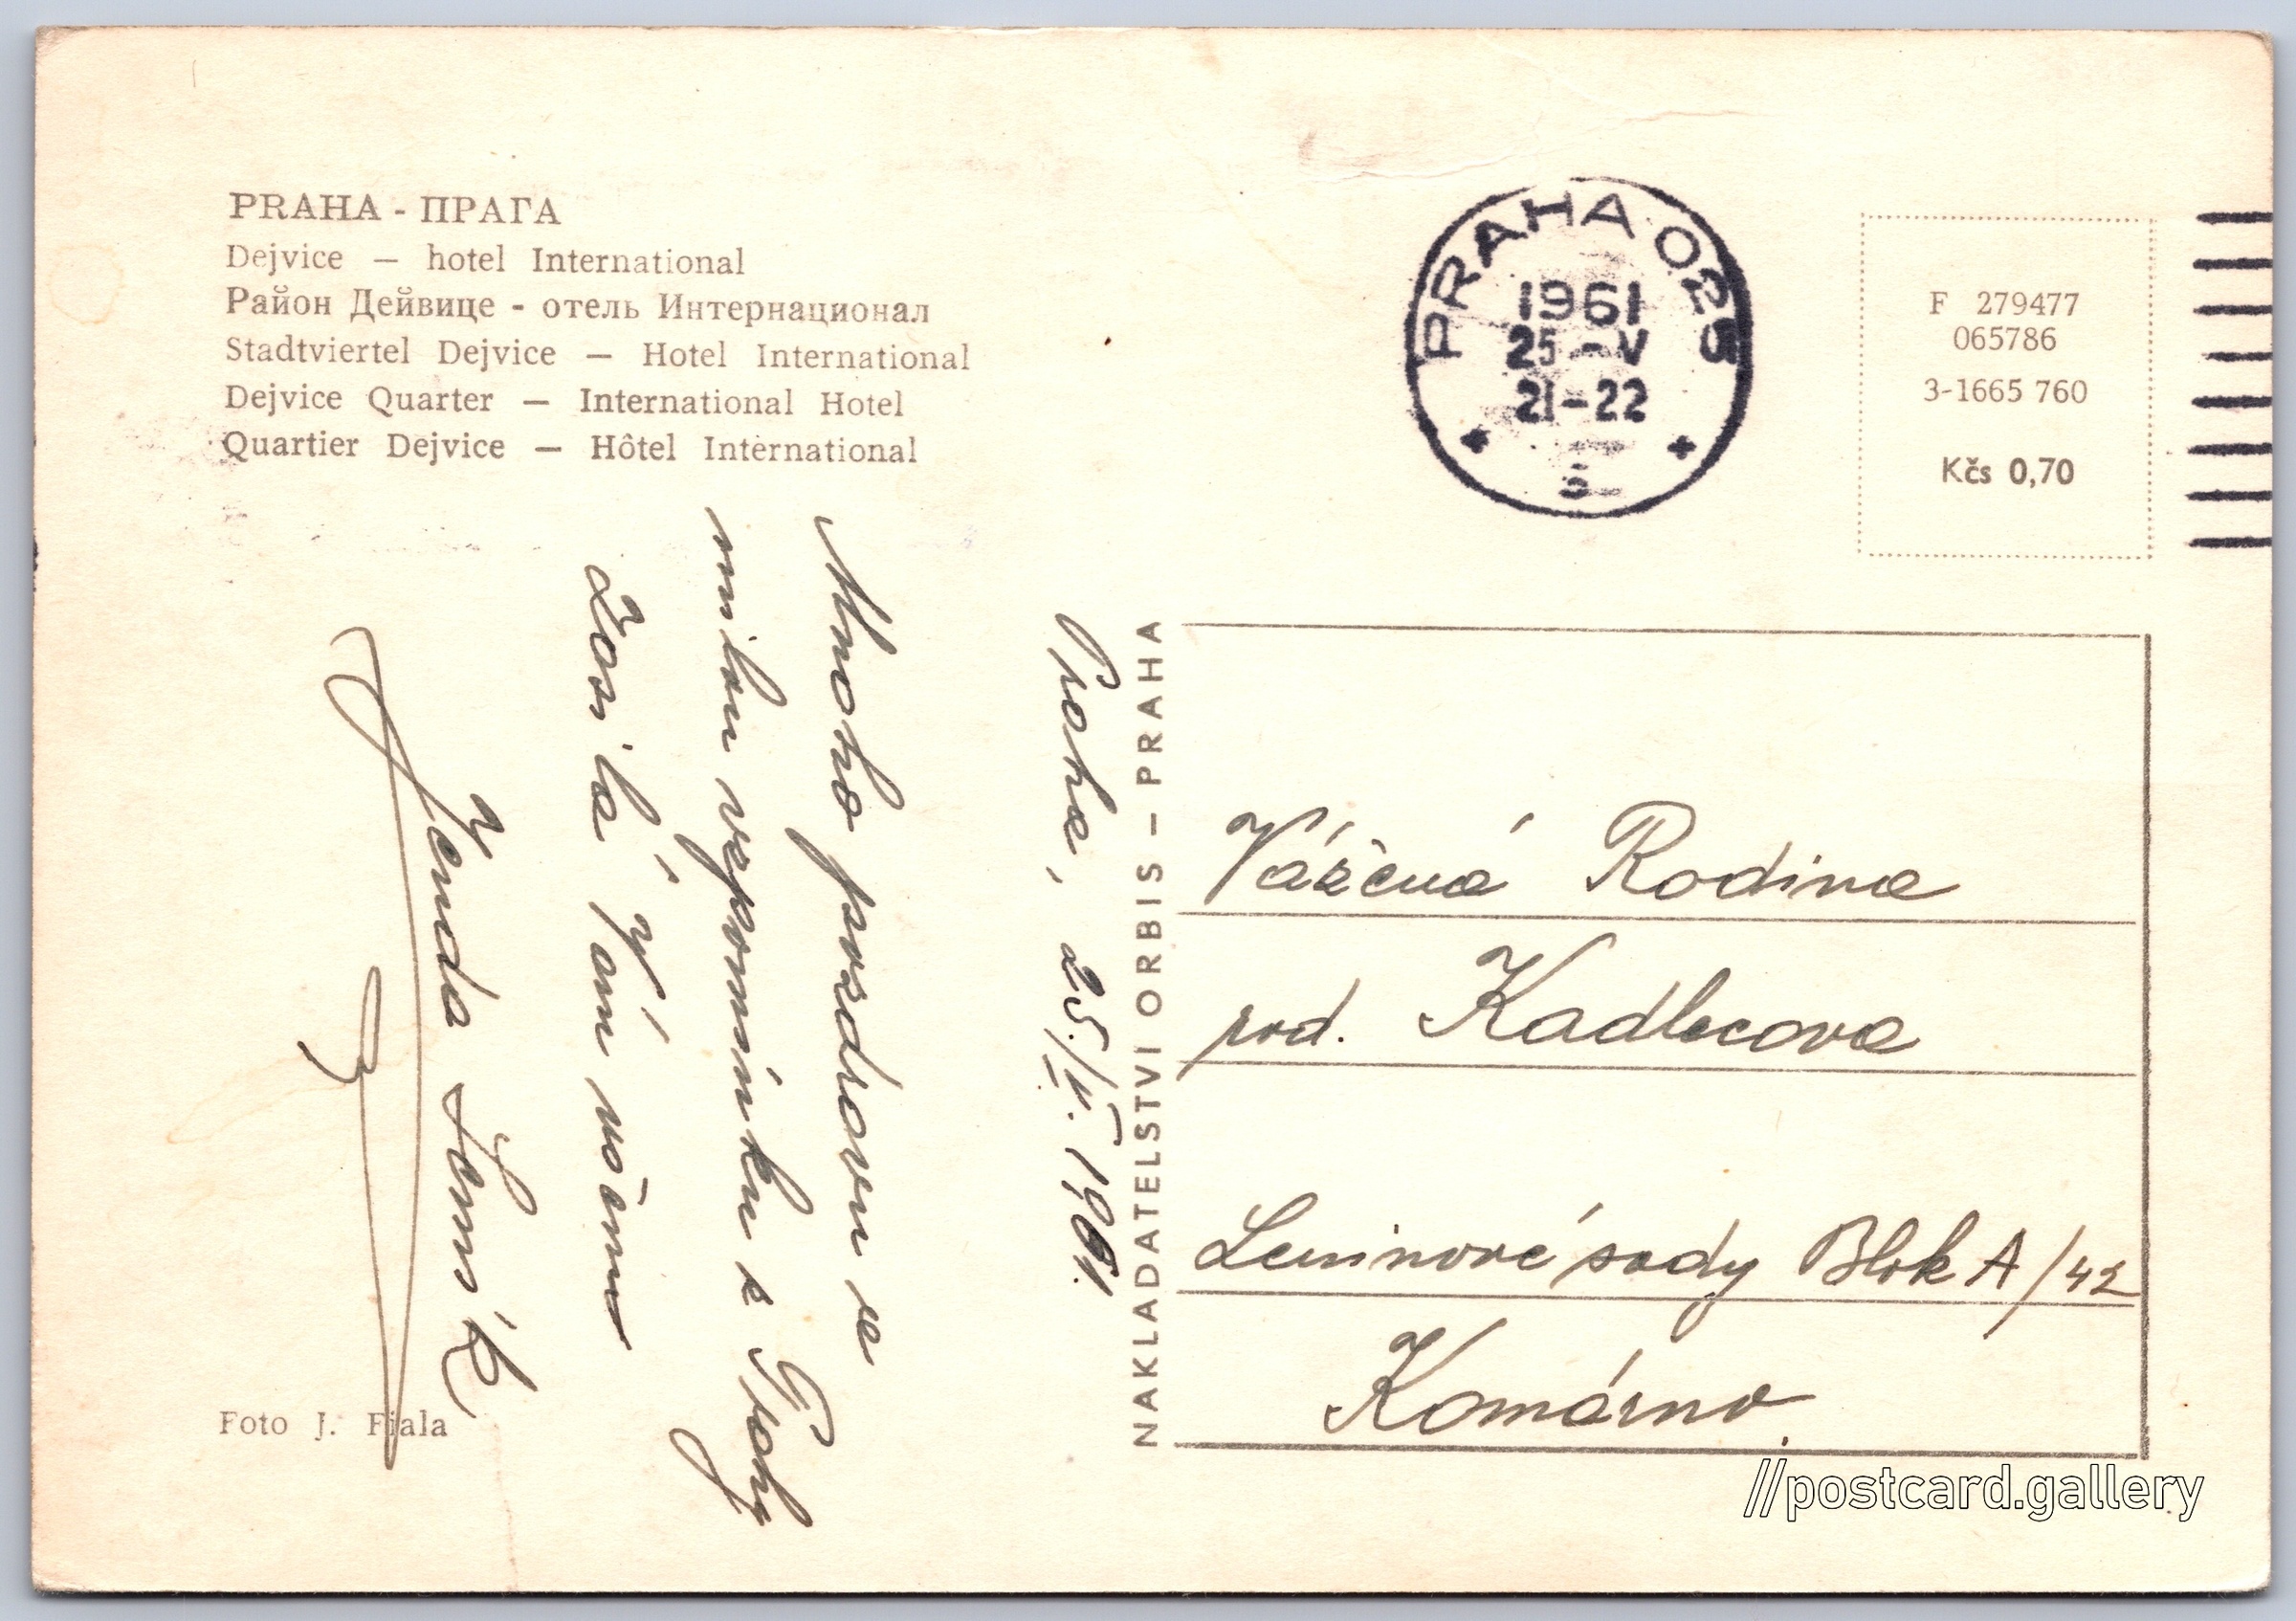 PRAHA - ПРАГА
Dejvice — hotel International
Район Дейвице - отель Интернационал
Stadtviertel Dejvice — Hotel International
Dejvice Quarter — International Hotel
Quartier Dejvice — Hôtel International
PRAHA 025
1961
25-V
21-22
F 279477
065786
3-1665 760
Kčs 0,70
Praha, 25./V. 1961.
Mnoho pozdravu se
milou vzpomínku z Prahy
Zasílá Vám všem
Jenda
Foto J. Fiala
NAKLADATELSTVI ORBIS – PRAHA
Vážená Rodina
rod. Kadlecova
Leninové sady Blok A/42
Komárno.
//postcard.gallery